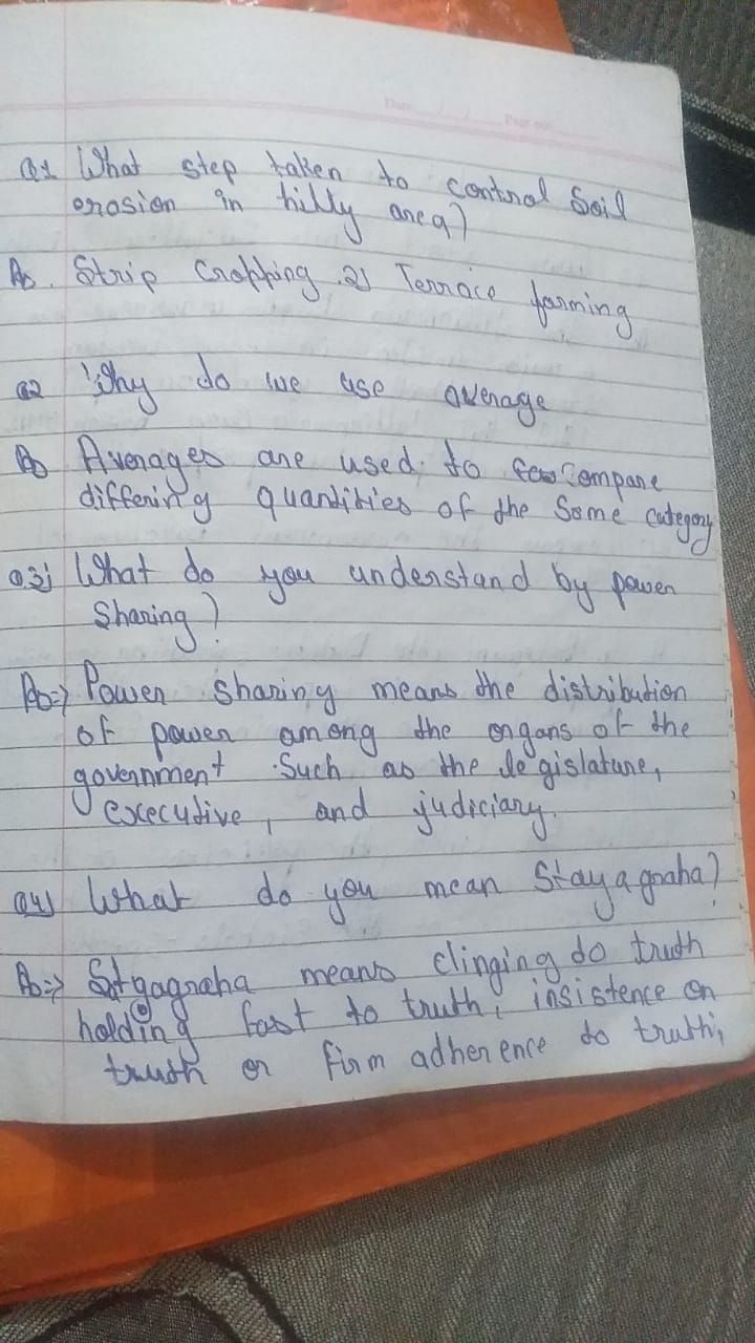 Date.
Page no.
Q1 What step taken to control Soil
erosion in hilly area?
As. Strip Cropping 2) Terrace farming
Q2 Why do we use average
As Averages are used to compare
differing quantities of the Same category
Q.3) What do you understand by power
Sharing?
As=> Power sharing means the distribution
of power among the organs of the
government Such as the legislature,
executive, and judiciary.
Q4) What do you mean Stayagraha?
As=> Satyagraha means clinging do truth
holding fast to truth, insistence on
truth or firm adherence do truth,